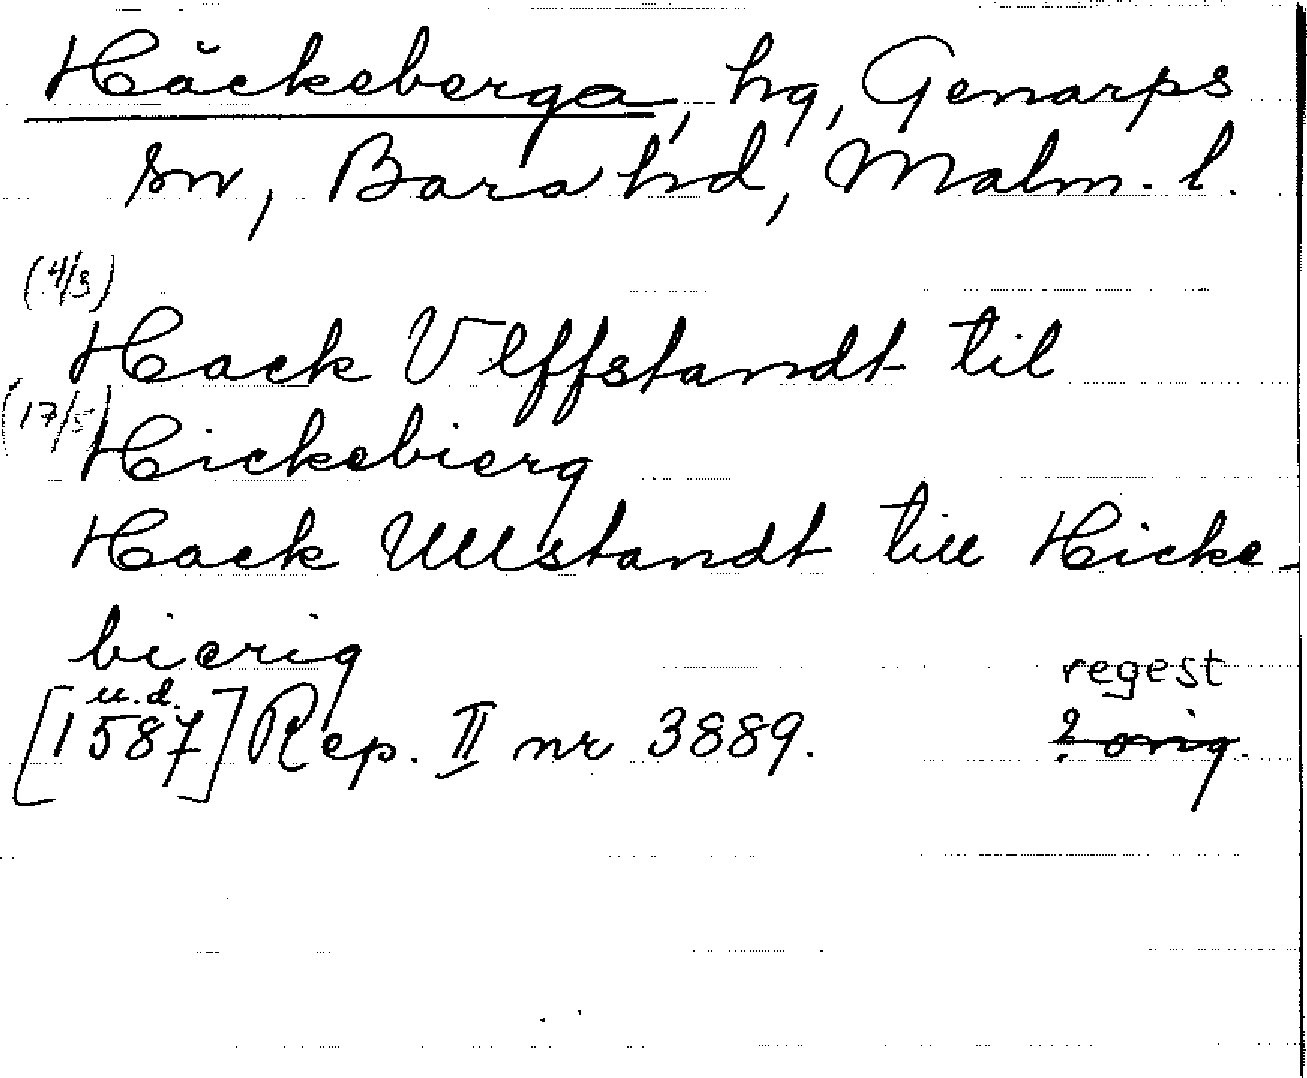 Häckeberga, hg, Genarps
sn, Bara hd, Malm. l.
(4/3)
Hack Vlffstandt til
(17/5)
Hickebierg
Hack Ulstandt till Hicke-
bierig
u.d.
regest
[1587] Rep. II nr 3889. 2 orig.